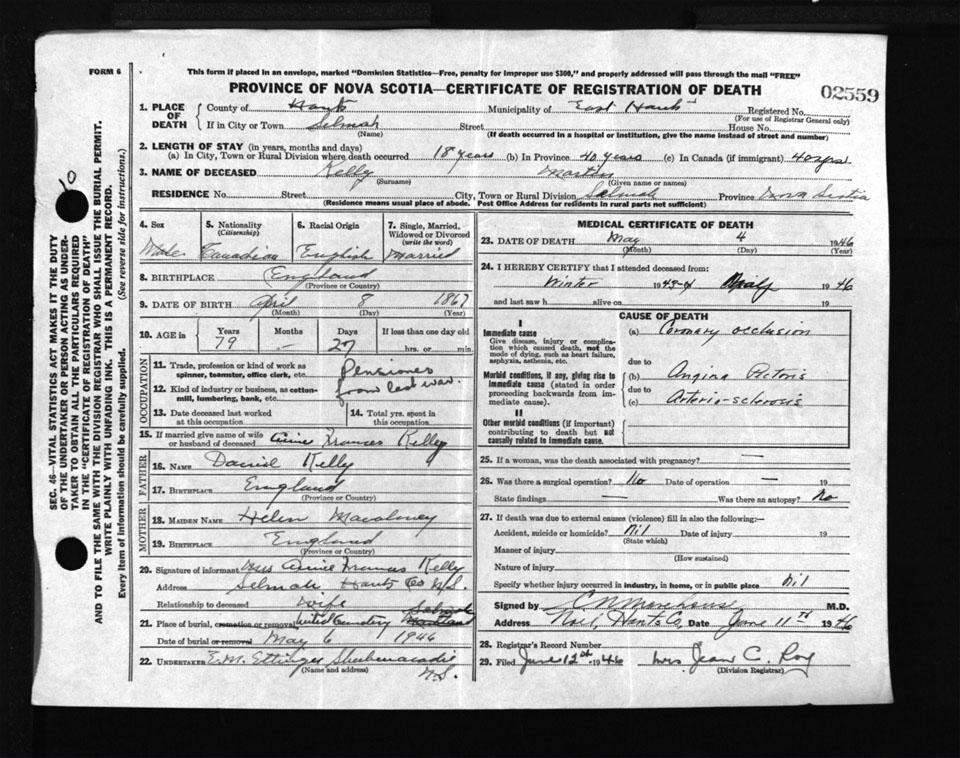 FORM 6
This form if placed in an envelope, marked "Dominion Statistics—Free, penalty for improper use $300," and properly addressed will pass through the mail "FREE"
PROVINCE OF NOVA SCOTIA—CERTIFICATE OF REGISTRATION OF DEATH
02559
1. PLACE OF DEATH
County of Hants Municipality of East Hants Registered No.
(For use of Registrar General only)
If in City or Town Selmah Street House No.
(Name) (If death occurred in a hospital or institution, give the name instead of street and number)
2. LENGTH OF STAY (in years, months and days)
(a) In City, Town or Rural Division where death occurred 18 years (b) In Province 40 years (c) In Canada (if immigrant) 40 yrs
3. NAME OF DECEASED Kelly Martin
(Surname) (Given name or names)
RESIDENCE No. Street City, Town or Rural Division Selmah Province Nova Scotia
(Residence means usual place of abode. Post Office Address for residents in rural parts not sufficient)
4. Sex
Male
5. Nationality
(Citizenship)
Canadian
6. Racial Origin
English
7. Single, Married, Widowed or Divorced
(write the word)
Married
8. BIRTHPLACE England
(Province or Country)
9. DATE OF BIRTH April 8 1867
(Month) (Day) (Year)
10. AGE in Years Months Days If less than one day old
79 – 27 hrs. or min.
OCCUPATION
11. Trade, profession or kind of work as spinner, teamster, office clerk, etc. Pensioner
12. Kind of industry or business, as cotton-mill, lumbering, bank, etc. from last war.
13. Date deceased last worked at this occupation
14. Total yrs. spent in this occupation
15. If married give name of wife or husband of deceased Annie Frances Kelly
FATHER
16. NAME Daniel Kelly
17. BIRTHPLACE England
(Province or Country)
MOTHER
18. MAIDEN NAME Helen
19. BIRTHPLACE England
(Province or Country)
20. Signature of informant Mrs Annie Frances Kelly
Address Selmah Hants Co N.S.
Relationship to deceased wife
21. Place of burial, cremation or removal United Cemetery Selmah Maitland
Date of burial or removal May 6 1946
22. UNDERTAKER E.M. Ettinger Shubenacadie
(Name and address) N.S.
MEDICAL CERTIFICATE OF DEATH
23. DATE OF DEATH May 4 1946
(Month) (Day) (Year)
24. I HEREBY CERTIFY that I attended deceased from:
Winter 1945-6 19 46
and last saw h alive on 19
CAUSE OF DEATH
I
Immediate cause
Give disease, injury or complication which caused death, not the mode of dying, such as heart failure, asphyxia, asthenia, etc.
(a) Coronary occlusion
due to
Morbid conditions, if any, giving rise to immediate cause (stated in order proceeding backwards from immediate cause).
(b) Angina Pectoris
due to
(c) Arterio-sclerosis
II
Other morbid conditions (if important) contributing to death but not causally related to immediate cause.
25. If a woman, was the death associated with pregnancy? —
26. Was there a surgical operation? No Date of operation —
State findings — Was there an autopsy? No
27. If death was due to external causes (violence) fill in also the following:—
Accident, suicide or homicide? Nil Date of injury 19
(State which)
Manner of injury
(How sustained)
Nature of injury
Specify whether injury occurred in industry, in home, or in public place Nil
Signed by M.D.
Address Noel, Hants Co, Date June 11th 1946
28. Registrar's Record Number
29. Filed June 12th 1946 Mrs. Jean C. Roy
(Division Registrar)
10
SEC. 46—VITAL STATISTICS ACT MAKES IT THE DUTY
OF THE UNDERTAKER OR PERSON ACTING AS UNDER-
TAKER TO OBTAIN ALL THE PARTICULARS REQUIRED
IN THE "CERTIFICATE OF REGISTRATION OF DEATH"
AND TO FILE THE SAME WITH THE DIVISION REGISTRAR WHO SHALL ISSUE THE BURIAL PERMIT.
WRITE PLAINLY WITH UNFADING INK. THIS IS A PERMANENT RECORD.
Every item of information should be carefully supplied. (See reverse side for instructions.)